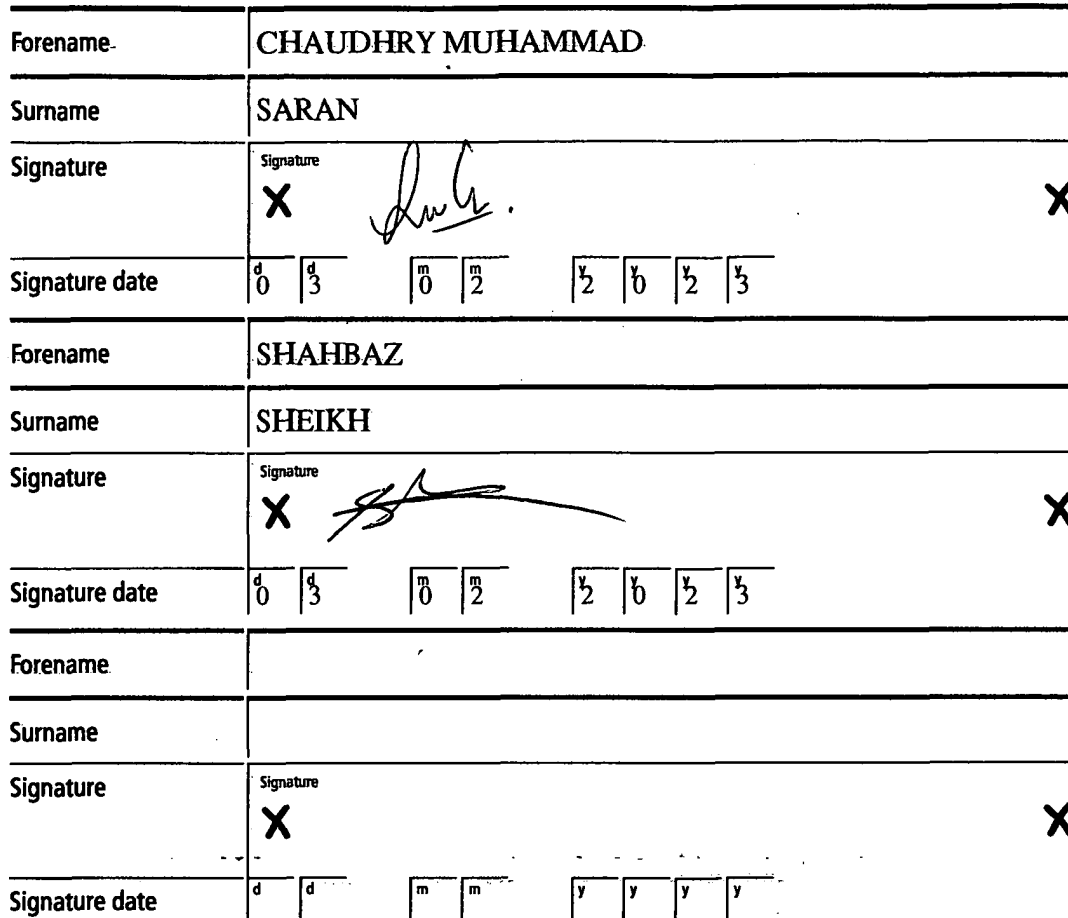 Forename CHAUDHRY MUHAMMAD
Surname SARAN
Signature Signature X X
Signature date d0 d3 m0 m2 y2 y0 y2 y3
Forename SHAHBAZ
Surname SHEIKH
Signature Signature X X
Signature date d0 d3 m0 m2 y2 y0 y2 y3
Forename
Surname
Signature Signature X X
Signature date d d m m y y y y